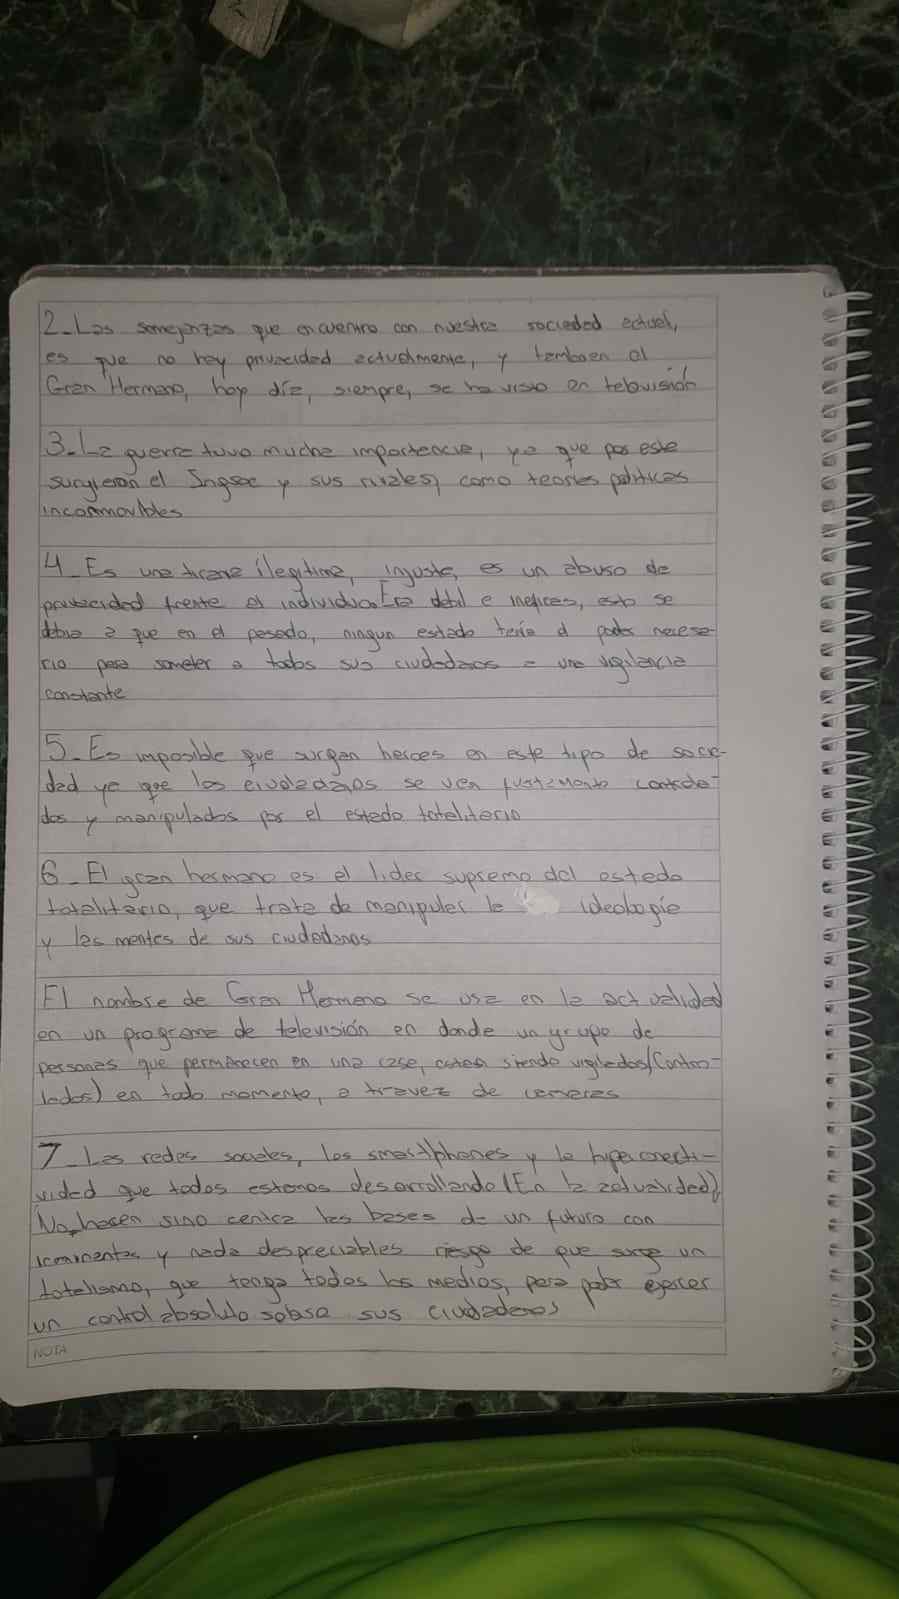 2_Las somejanzas que encuentro con nuestra sociedad actual,
es que no hay privacidad actualmente, y tambien al
Gran Hermano, hoy día, siempre, se ha visto en televisión
3._La guerra tuvo mucha importancia, ya que por este
surgieron el Ingsoc y sus rivales, como teorias politicas
inconmovibles
4_Es una tirana ilegitima, injusta, es un abuso de
privacidad frente al individuo. Era debil e ineficas, esto se
debia a que en el pasado, ningun estado tenia el poder necesa-
rio para someter a todos sus ciudadanos a una vigilancia
constante
5_Es imposible que surgan heroes en este tipo de socie-
dad ya que los ciudadanos se ven controla-
dos y manipulados por el estado totalitario
6_El gran hermano es el lider supremo del estado
totalitario, que trata de manipular la ideologia
y las mentes de sus ciudadanos
El nombre de Gran Hermano se usa en la actualidad
en un programa de televisión en donde un grupo de
personas que permanecen en una casa, estan siendo vigilados/(Contro-
lados) en todo momento, a travez de camaras
7_Las redes sociales, los smartphones y la hiperconecti-
vidad que todos estamos desarrollando (En la actualidad),
No hacen sino las bases de un futuro con
y nada despreciables riesgo de que surga un
totalismo, que tenga todos los medios, para poder ejercer
un control absoluto sobre sus ciudadanos
NOTA